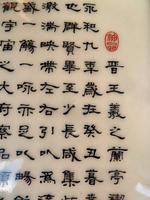 晋王羲之蘭亭
永和九年歲在癸丑暮春
也群賢畢至少長咸集
激湍映帶左右引以
盛一觴一詠亦足以暢
觀宇宙之大府察品